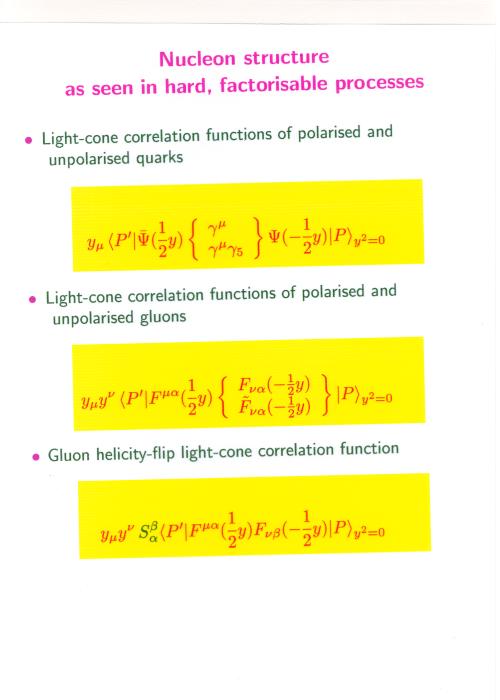 Nucleon structure
as seen in hard, factorisable processes
• Light-cone correlation functions of polarised and
unpolarised quarks
y_μ ⟨P′|Ψ̄(½y) { γ^μ / γ^μγ_5 } Ψ(−½y)|P⟩_{y²=0}
• Light-cone correlation functions of polarised and
unpolarised gluons
y_μ y^ν ⟨P′|F^{μα}(½y) { F_{να}(−½y) / F̃_{να}(−½y) } |P⟩_{y²=0}
• Gluon helicity-flip light-cone correlation function
y_μ y^ν S^β_α ⟨P′|F^{μα}(½y)F_{νβ}(−½y)|P⟩_{y²=0}